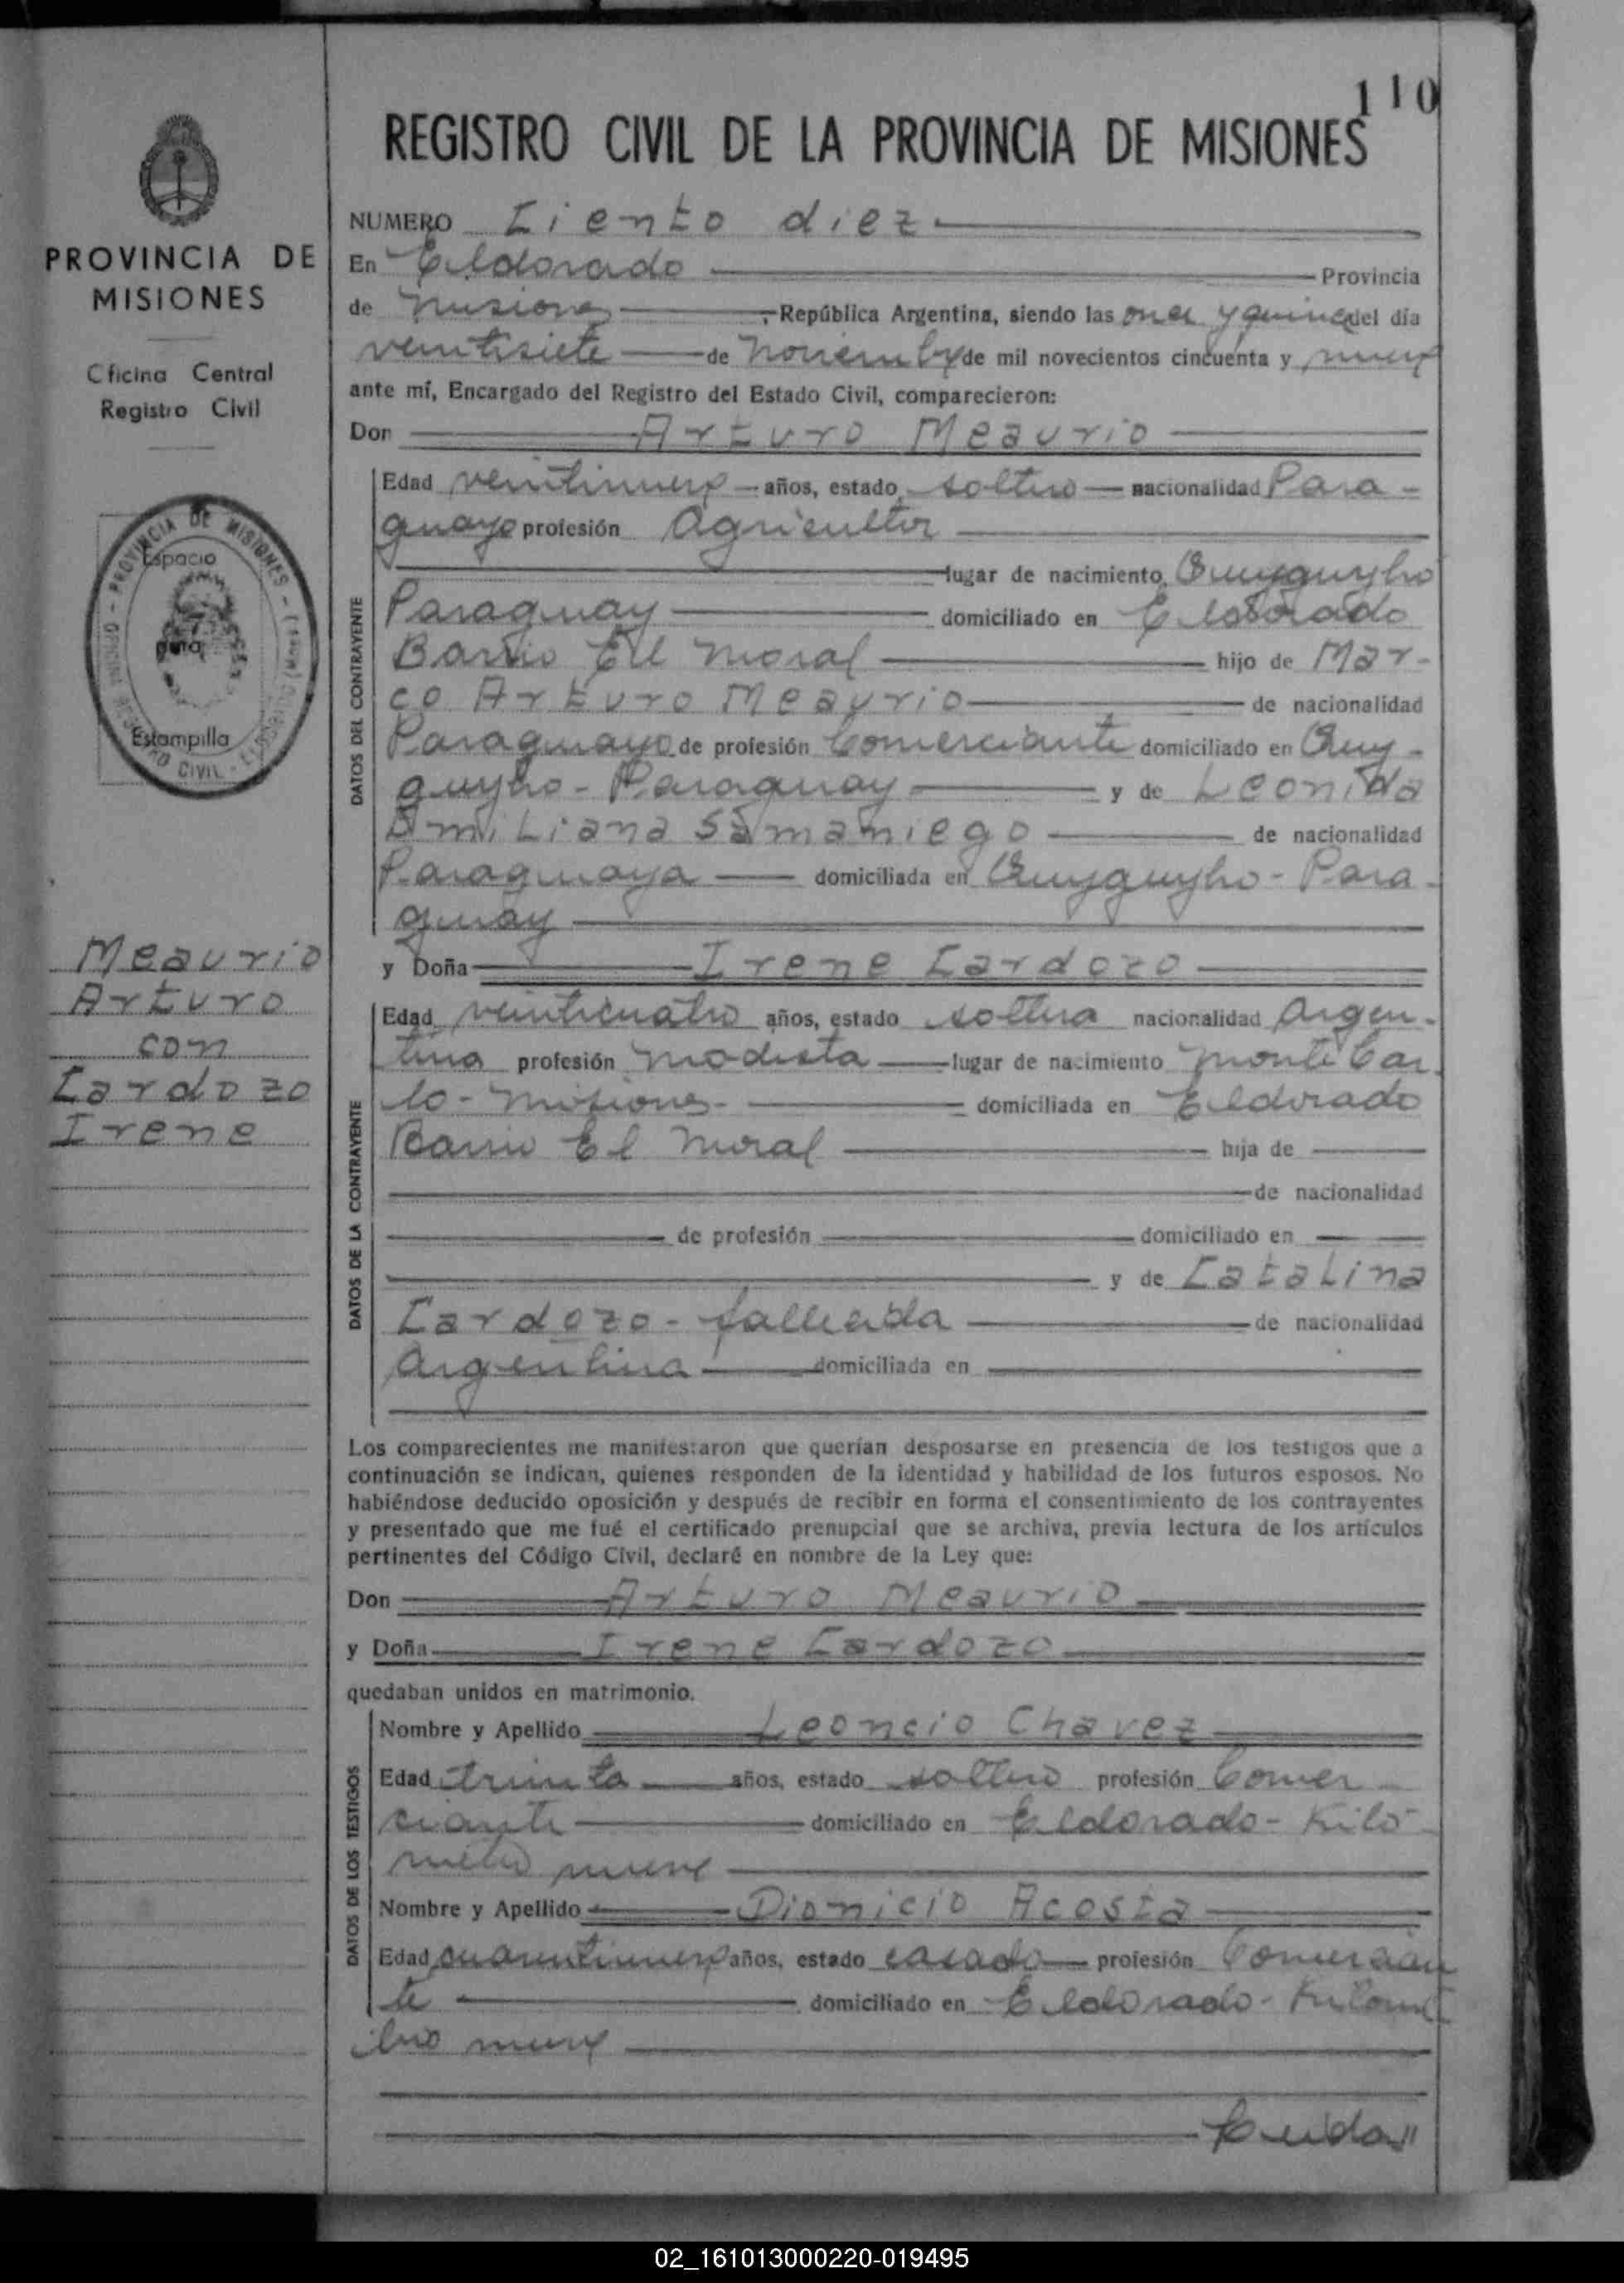 110
REGISTRO CIVIL DE LA PROVINCIA DE MISIONES
PROVINCIA DE
MISIONES
Oficina Central
Registro Civil
PROVINCIA DE MISIONES
Espacio
para
Estampilla
CIVIL
Meaurio
Arturo
con
Cardozo
Irene
NUMERO Ciento diez
En Eldorado Provincia
de Misiones República Argentina, siendo las once y quince del día
veintisiete de noviembre de mil novecientos cincuenta y nueve
ante mí, Encargado del Registro del Estado Civil, comparecieron:
Don Arturo Meaurio
DATOS DEL CONTRAYENTE
Edad veintinueve años, estado soltero nacionalidad Para-
guayo profesión Agricultor
lugar de nacimiento
Paraguay domiciliado en Eldorado
Barrio El Moral hijo de Mar-
co Arturo Meaurio de nacionalidad
Paraguayo de profesión Comerciante domiciliado en
Paraguay y de Leonida
Emiliana Samaniego de nacionalidad
Paraguaya domiciliada en Para-
guay
y Doña Irene Cardozo
DATOS DE LA CONTRAYENTE
Edad veinticuatro años, estado soltera nacionalidad Argen-
tina profesión modista lugar de nacimiento Monte Car-
lo - Misiones - domiciliada en Eldorado
Barrio El Moral hija de
de nacionalidad
de profesión domiciliado en
y de Catalina
Cardozo - fallecida de nacionalidad
Argentina domiciliada en
Los comparecientes me manifestaron que querían desposarse en presencia de los testigos que a
continuación se indican, quienes responden de la identidad y habilidad de los futuros esposos. No
habiéndose deducido oposición y después de recibir en forma el consentimiento de los contrayentes
y presentado que me fué el certificado prenupcial que se archiva, previa lectura de los artículos
pertinentes del Código Civil, declaré en nombre de la Ley que:
Don Arturo Meaurio
y Doña Irene Cardozo
quedaban unidos en matrimonio.
DATOS DE LOS TESTIGOS
Nombre y Apellido Leoncio Chavez
Edad treinta años, estado soltero profesión Comer-
ciante domiciliado en Eldorado - Kiló-
metro nueve
Nombre y Apellido Dionicio Acosta
Edad cuarentinueve años, estado casado profesión Comercian
te domiciliado en Eldorado - Kilóme
tro nueve
02_161013000220-019495